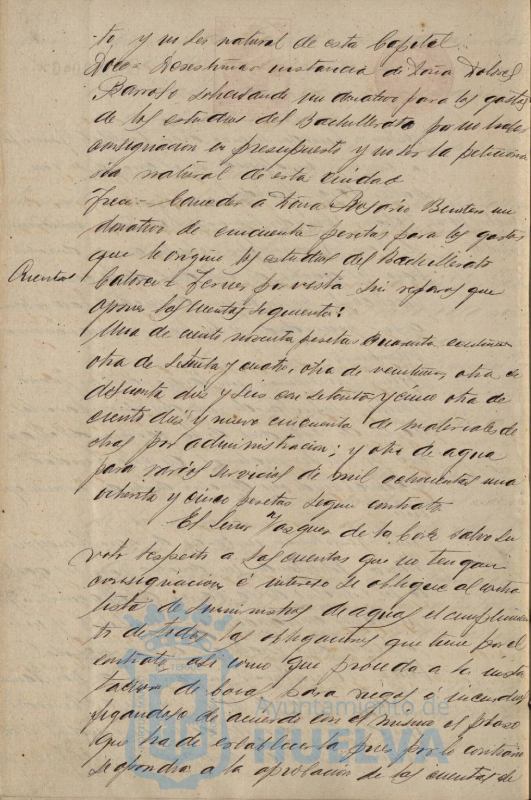 to y no ser natural de esta Capital.
Doce= Desestimar instancia de Doña Dolores
Barroso solicitando un donativo para los gastos
de los estudios del Bachillerato por no haber
consignacion en presupuesto y no ser la peticiona
ria natural de esta Ciudad
Trece= Conceder a Doña Rosario Benitez un
donativo de cincuenta pesetas para los gastos
que le origine los estudios del bachillerato
Cuentas
Catorce= Tener por vista sin reparos que
oponer las cuentas siguientes:
Una de ciento noventa pesetas cuarenta centimos
otra de setenta y cuatro, otra de veintiuna, otra de
diez y seis con setenta y cinco otra de
ciento diez y nueve cincuenta de materiales de
obras por administracion; y otra de agua
para varios servicios de mil ochocientas una
ochenta y cinco pesetas segun contrato.
El Señor Vazquez de la Corte salvo su
voto respecto a las cuentas que no tengan
consignacion, é intereso se obligue al contra
tista de suministros de aguas el cumplimien
to de todas las obligaciones que tiene por el
contrato asi como que proceda a la insta
lacion de bocas para riegos e incendios
fijandose de acuerdo con el mismo el plazo
que ha de establecerla pues por lo contrario
se opondrá a la aprobacion de las cuentas de
Ayuntamiento de
HUELVA